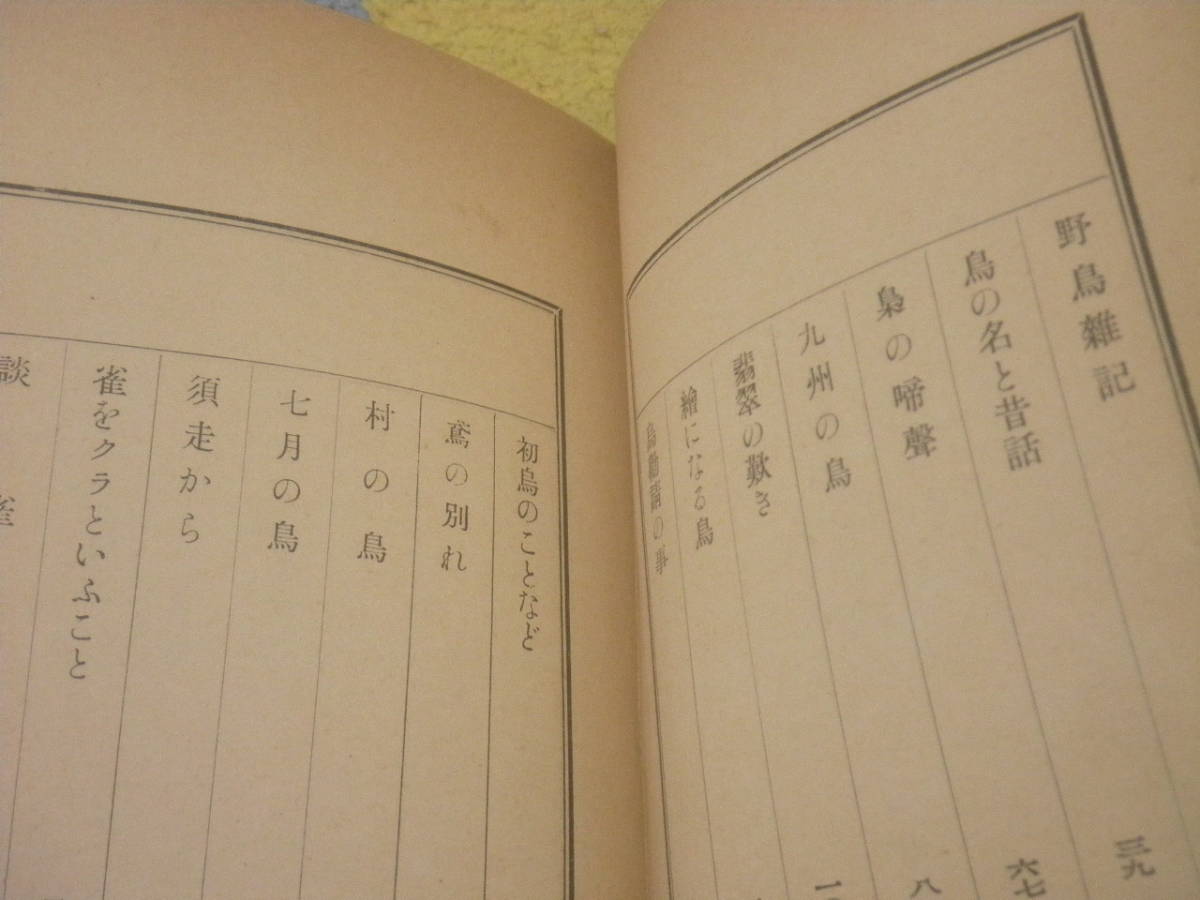 野鳥雜記
三九
鳥の名と昔話
六七
梟の啼聲
八
九州の鳥
一
翡翠の歎き
繪になる鳥
鳥勸請の事
初烏のことなど
鳶の別れ
村の鳥
七月の鳥
須走から
雀をクラといふこと
談
雀